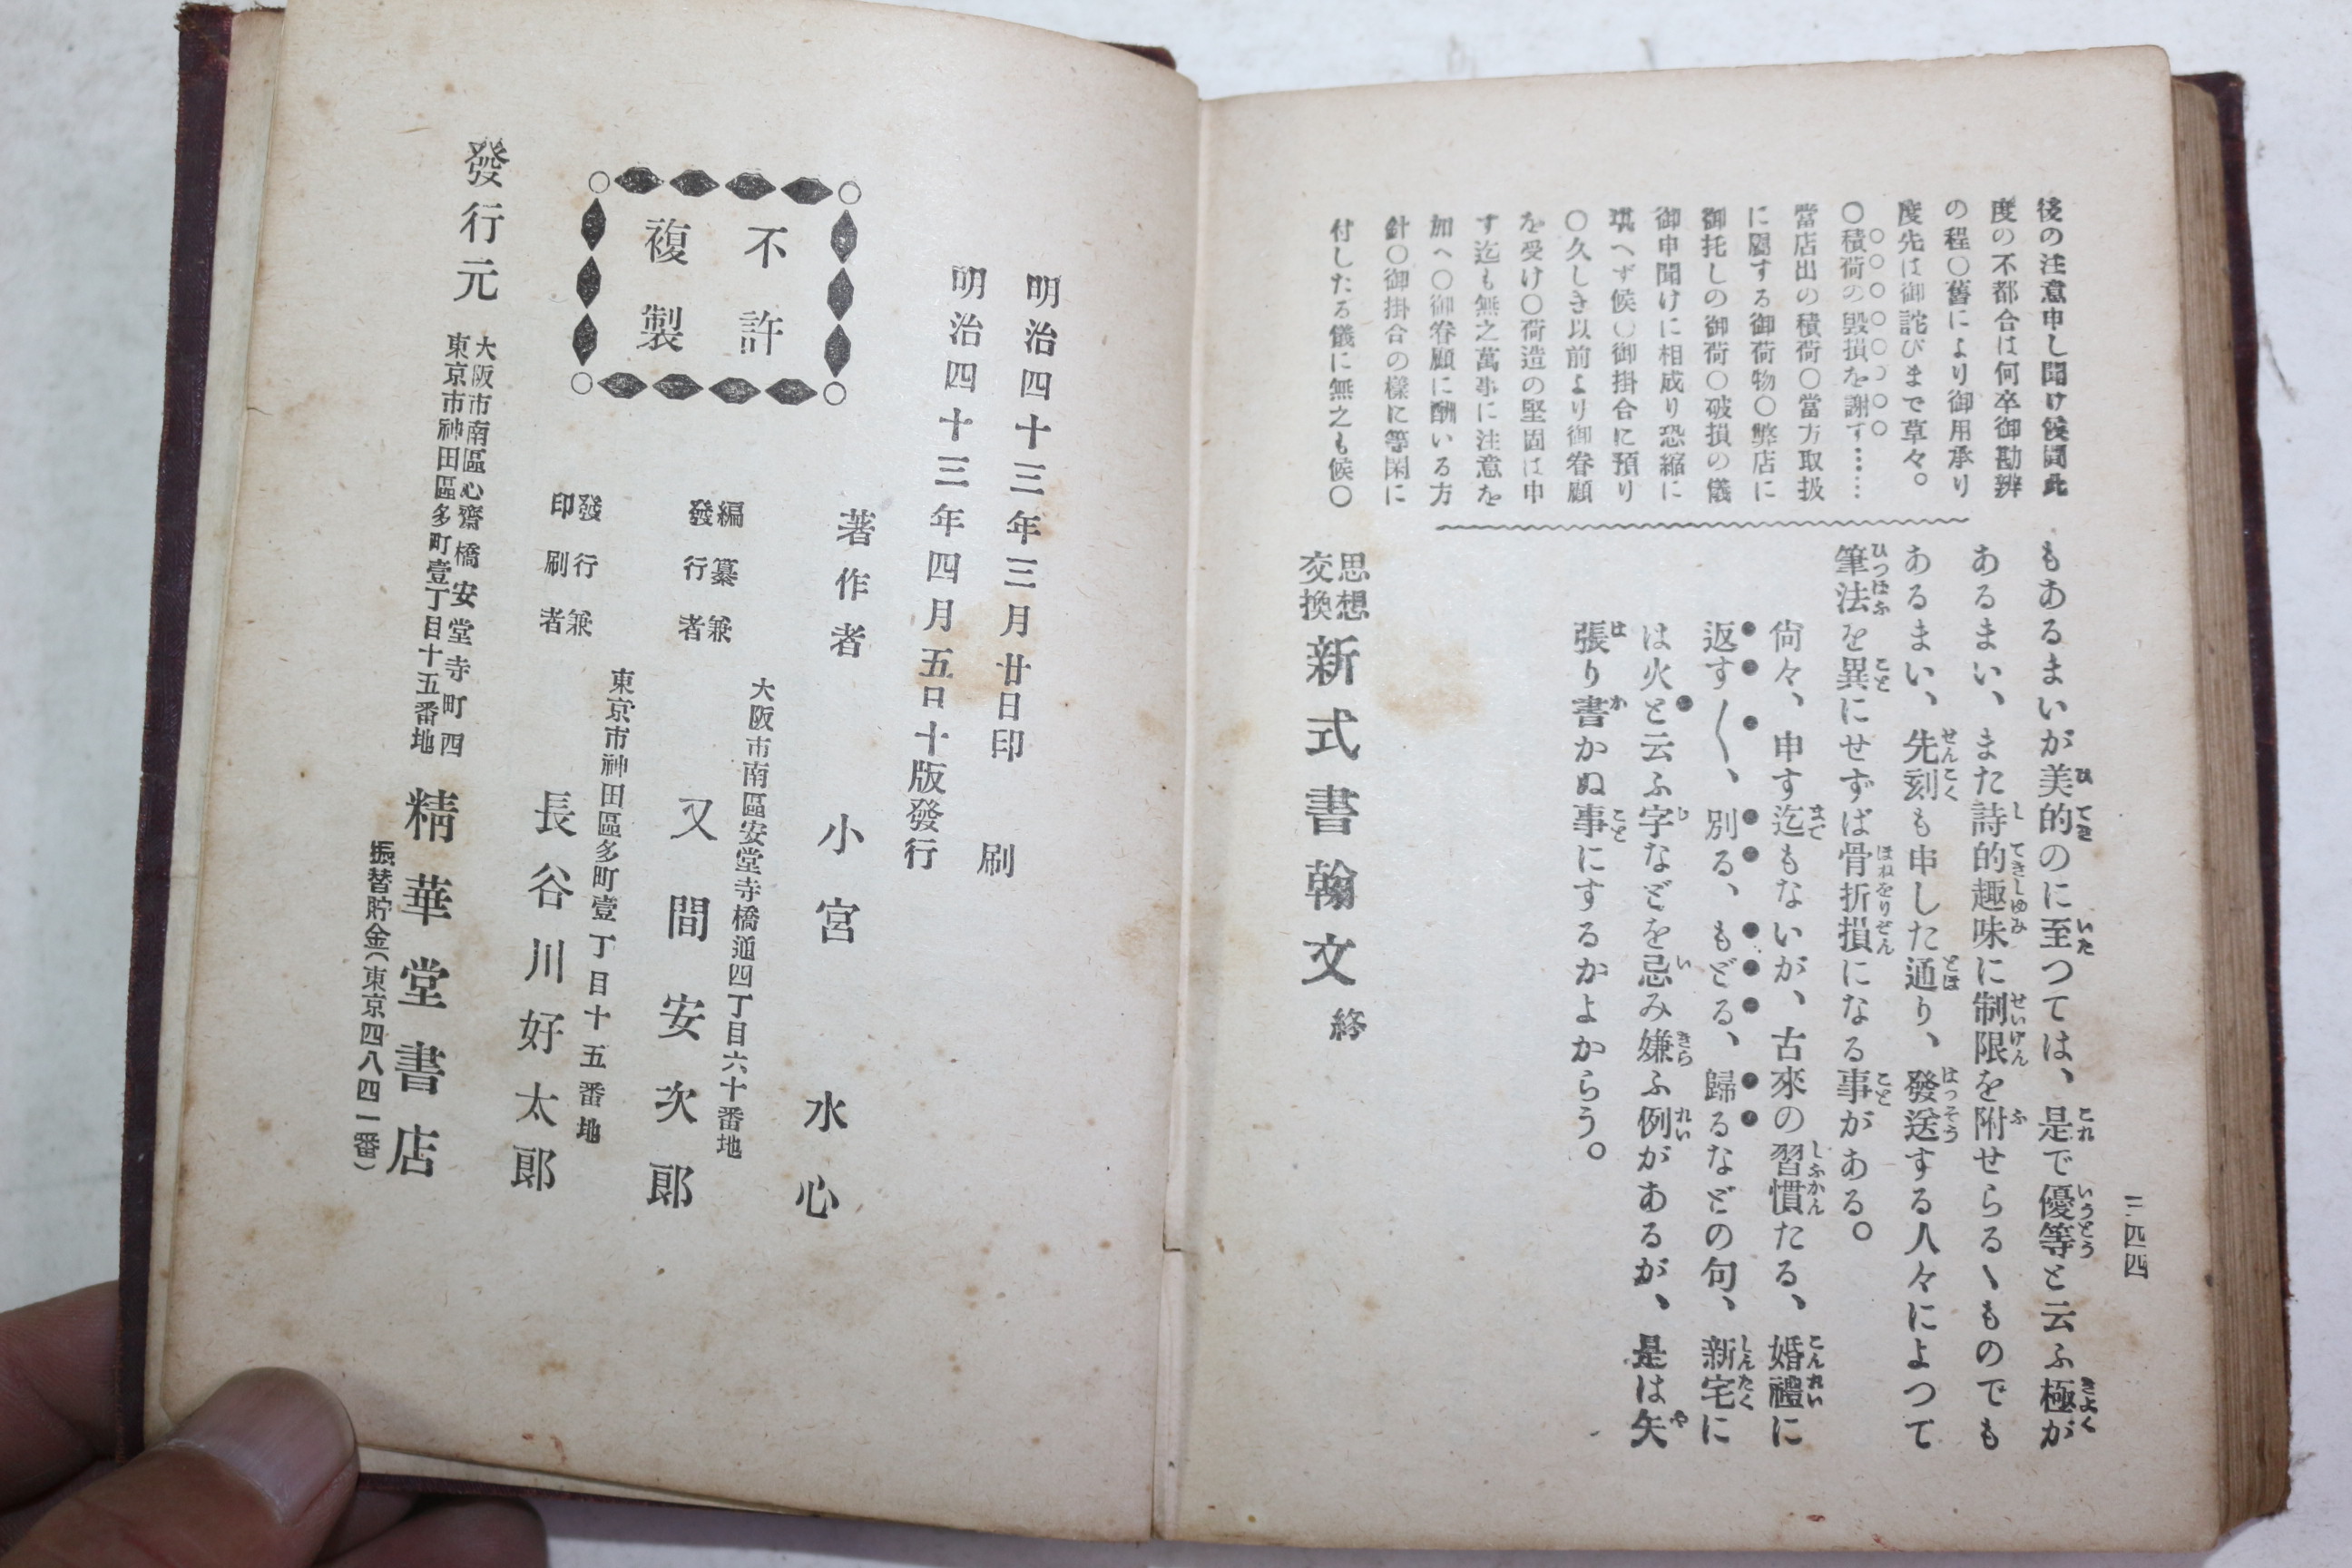 三四四
後の注意申し聞け候間此
度の不都合は何卒御勘辨
の程〇舊により御用承り
度先は御詫びまで草々。
〇積荷の毀損を謝す……
當店出の積荷〇當方取扱
に關する御荷物〇弊店に
御托しの御荷〇破損の儀
御申聞けに相成り恐縮に
堪へず候〇御掛合に預り
〇久しき以前より御眷顧
を受け〇荷造の堅固は申
す迄も無之萬事に注意を
加へ〇御眷顧に酬いる方
針〇御掛合の樣に等閑に
付したる儀に無之も候〇
もあるまいが美的のに至つては、是で優等と云ふ極が
あるまい、また詩的趣味に制限を附せらるゝものでも
あるまい、先刻も申した通り、發送する人々によつて
筆法を異にせずば骨折損になる事がある。
尙々、申す迄もないが、古來の習慣たる、婚禮に
返す〱、別る、もどる、歸るなどの句、新宅に
は火と云ふ字などを忌み嫌ふ例があるが、是は矢
張り書かぬ事にするかよからう。
思想
交換
新式書翰文 終
明治四十三年三月廿日印刷
明治四十三年四月五日十版發行
不許
複製
著作者 小宮水心
大阪市南區安堂寺橋通四丁目六十番地
編纂兼
發行者
又間安次郎
東京市神田區多町壹丁目十五番地
發行兼
印刷者
長谷川好太郎
發行元
大阪市南區心齋橋安堂寺町四
東京市神田區多町壹丁目十五番地
精華堂書店
振替貯金(東京四八四一番)